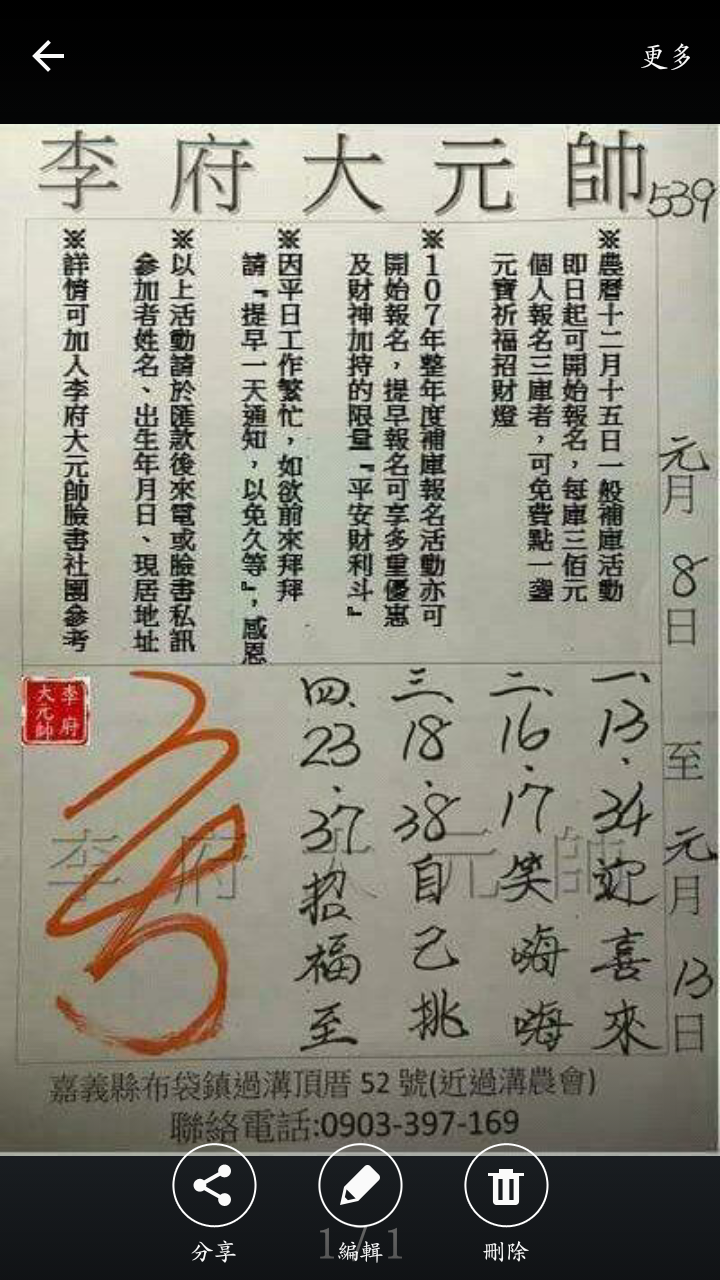 更多
李府大元帥
539
※農曆十二月十五日一般補庫活動
即日起可開始報名，每庫三佰元
個人報名三庫者，可免費點一盞
元寶祈福招財燈
※107年整年度補庫報名活動亦可
開始報名，提早報名可享多重優惠
及財神加持的限量『平安財利斗』
※因平日工作繁忙，如欲前來拜拜
請『提早一天通知，以免久等』，感恩
※以上活動請於匯款後來電或臉書私訊
參加者姓名、出生年月日、現居地址
※詳情可加入李府大元帥臉書社團參考
元月8日至元月13日
一、13.34迎喜來
二、16.17笑嗨嗨
三、18.38自己挑
四、23.37招福至
李府大元帥
李府大元帥
嘉義縣布袋鎮過溝頂厝 52 號(近過溝農會)
聯絡電話:0903-397-169
1/1
分享
編輯
刪除